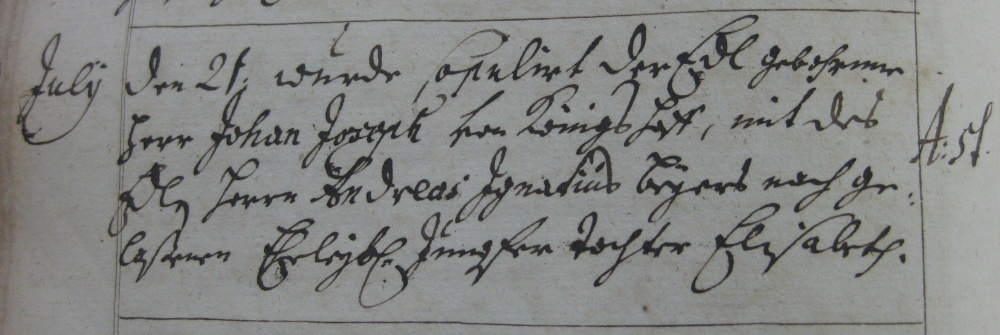 July den 21. wurde copulirt der Edl gebohrene
Herr Johan Joseph von Königshoff, mit des
Edlen Herrn Andreas Ignatius Beyers nach ge-
laßenen Eheleybl. Jungfer Tochter Elisabeth.